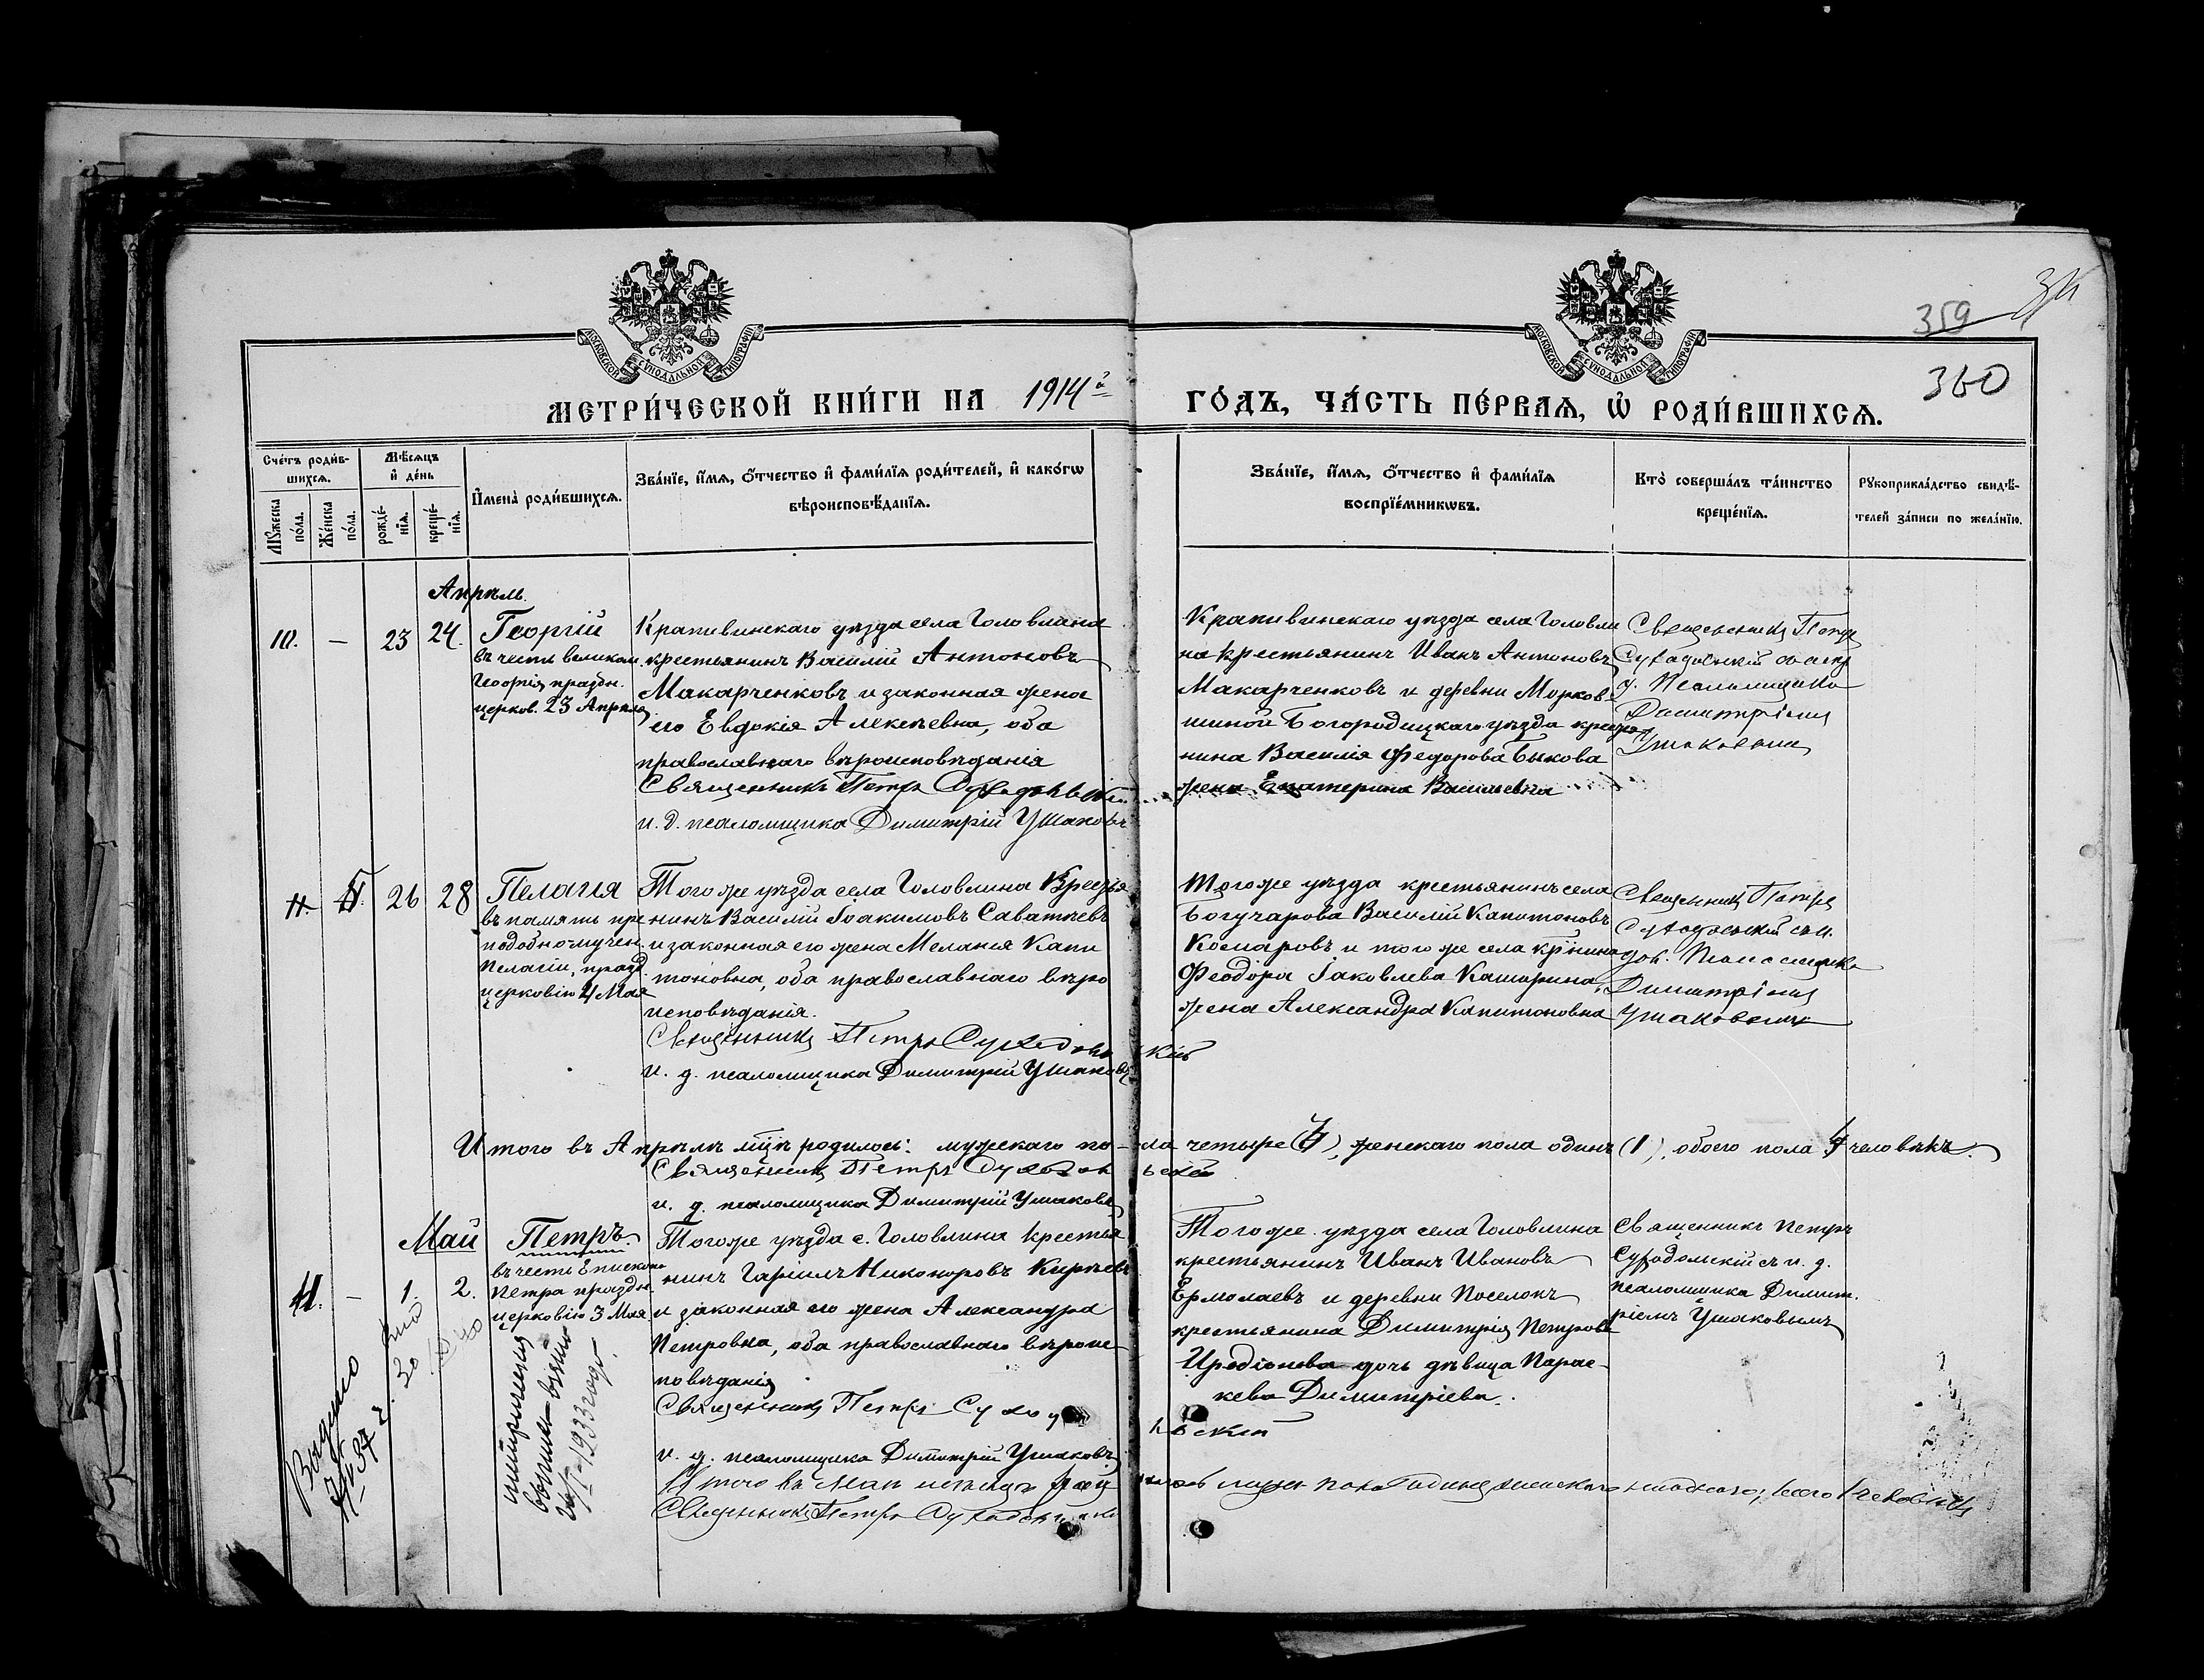 359
360
МОСКОВСКОЙ СУНОДАЛЬНОЙ ТИПОГРАФІИ
МОСКОВСКОЙ СУНОДАЛЬНОЙ ТИПОГРАФІИ
МЕТРИ́ЧЕСКОЙ КНИ́ГИ НА 1914й
ГО́ДЪ, ЧА́СТЬ ПЕ́РВАѦ, Ѡ҆ РОДИ́ВШИХСѦ.
Сче́тъ роди́в-
шихсѧ.
Мꙋ́жеска по́ла.
Же́нска по́ла.
Мѣ́сѧцъ
и҆ де́нь
рожде́-
нїѧ.
креще́-
нїѧ.
И҆мена̀ роди́вшихсѧ.
Зва́нїе, и҆́мѧ, ѻ҆́тчество и҆ фами́лїѧ роди́телей, и҆ како́гѡ
вѣроисповѣ́данїѧ.
Зва́нїе, и҆́мѧ, ѻ҆́тчество и҆ фами́лїѧ
воспрїе́мникѡвъ.
Кто̀ соверша́лъ та́инство
креще́нїѧ.
Рꙋкоприкла́дство свидѣ́-
телей за́писи по жела́нїю.
Апрѣль.
10. — 23 24.
Георгій
въ честь великом.
Георгія праздн.
церков. 23 Апрѣля
Крапивинскаго уѣзда села Головлина
крестьянинъ Василій Антоновъ
Макарченковъ и законная жена
его Евдокія Алексѣевна, оба
православнаго вѣроисповѣданія
Священникъ Петръ Суходольскій
и. д. псаломщика Димитрій Ушаковъ
Крапивинскаго уѣзда села Головли
на крестьянинъ Иванъ Антоновъ
Макарченковъ и деревни Морков-
шиной Богородицкаго уѣзда крестья
нина Василія Федорова Быкова
жена Екатерина Васильевна
Священникъ Петръ
Суходольскій
псаломщика
Димитріемъ
Ушаковымъ
26 28
Пелагія
въ память пре
подобно-мучен.
Пелагіи, празд.
церковію 4 Мая
Того же уѣзда села Головлина Крестья
нинъ Василій Іоакимовъ Саватѣевъ
и законная его жена Меланія Капи
тоновна, оба православнаго вѣро
исповѣданія.
Священникъ Петръ Суходольскій
и. д. псаломщика Димитрій Ушаковъ
Того же уѣзда крестьянинъ села
Богучарова Василій Капитоновъ
Комаровъ и того же села кр҃нина
Феодора Іаковлева Кашарина
жена Александра Капитоновна
Священникъ Петръ
Суходольскій съ и.
дол. Псаломщика
Димитріемъ
Ушаковымъ
Итого въ Апрѣлѣ мц҃ѣ родилось: мужескаго по-ла четыре (4), женскаго пола одинъ (1), обоего пола человѣкъ.
Священникъ Петръ Суходольскій
и. д. псаломщика Димитрій Ушаковъ
Май
11. — 1. 2.
Петръ.
въ честь Епископа
Петра праздн.
церковію 3 Мая
Того же уѣзда с. Головлина крестья
нинъ Гаріилъ Никоноровъ Кирѣевъ
и законная его жена Александра
Петровна, оба православнаго вѣроис-
повѣданія
Священникъ Петръ Суходольскій
и. д. псаломщика Димитрій Ушаковъ
Того же уѣзда села Головлина
крестьянинъ Иванъ Ивановъ
Ермолаевъ и деревни Поселокъ
крестьянина Димитрія Петрова
Иродіонова дочь дѣвица Парас-
кева Димитріева.
Священникъ Петръ
Суходольскій съ и. д.
псаломщика Димит.
ріемъ Ушаковымъ
Выдано
1933 году.
Итого въ Маѣ мѣсяцѣ
Священникъ Петръ Суходольскій